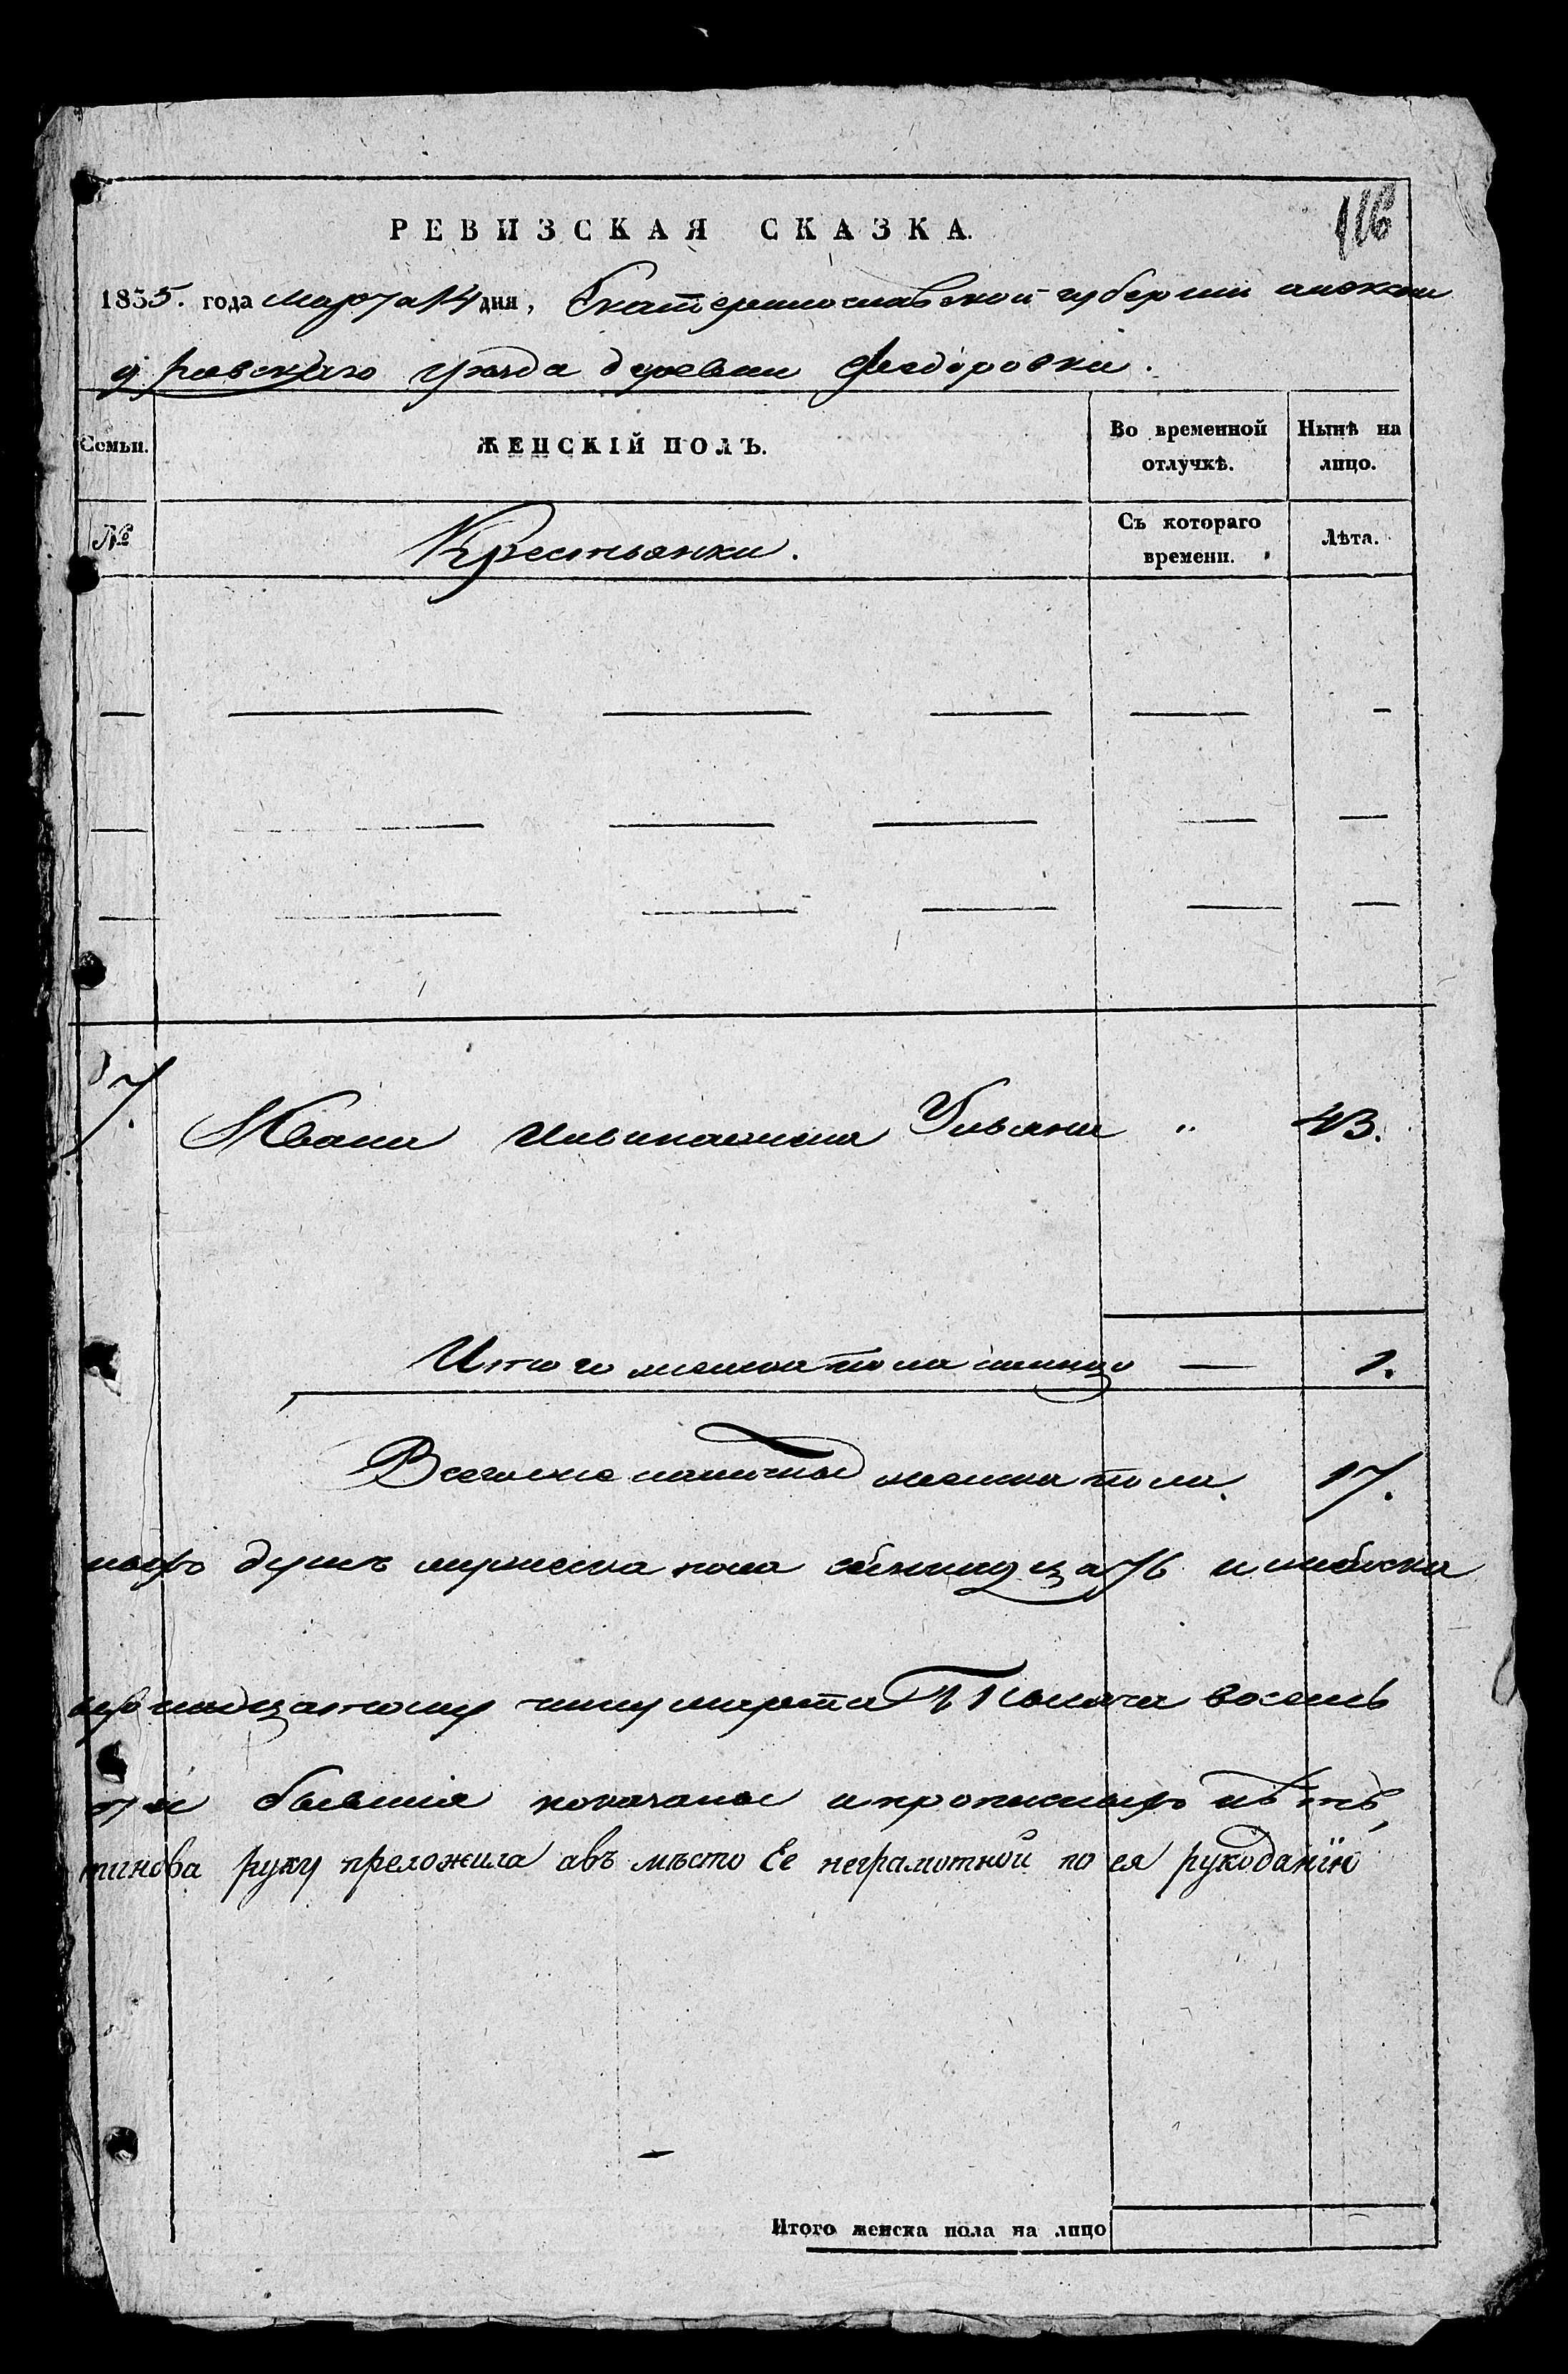 116
РЕВИЗСКАЯ СКАЗКА.
1835. года марта 14 дня, Екатеринославской губернии алексан
дровскаго уѣзда деревни Федоровки.
Семьи. ЖЕНСКІЙ ПОЛЪ. Во временной отлучкѣ. Нынѣ на лицо.
№ Крестьянки. Съ котораго времени. Лѣта.
7. Ивана жена Ульяна " 43.
Итого женска пола налицо — 1.
Всего же наличныхъ женска пола. 17.
душъ мужеска пола
марта восемь
бывшія показаны и прописныхъ нѣтъ,
тинова руку преложила авъ мѣсто Ее неграмотной по ея рукоданїю
Итого женска пола на лицо